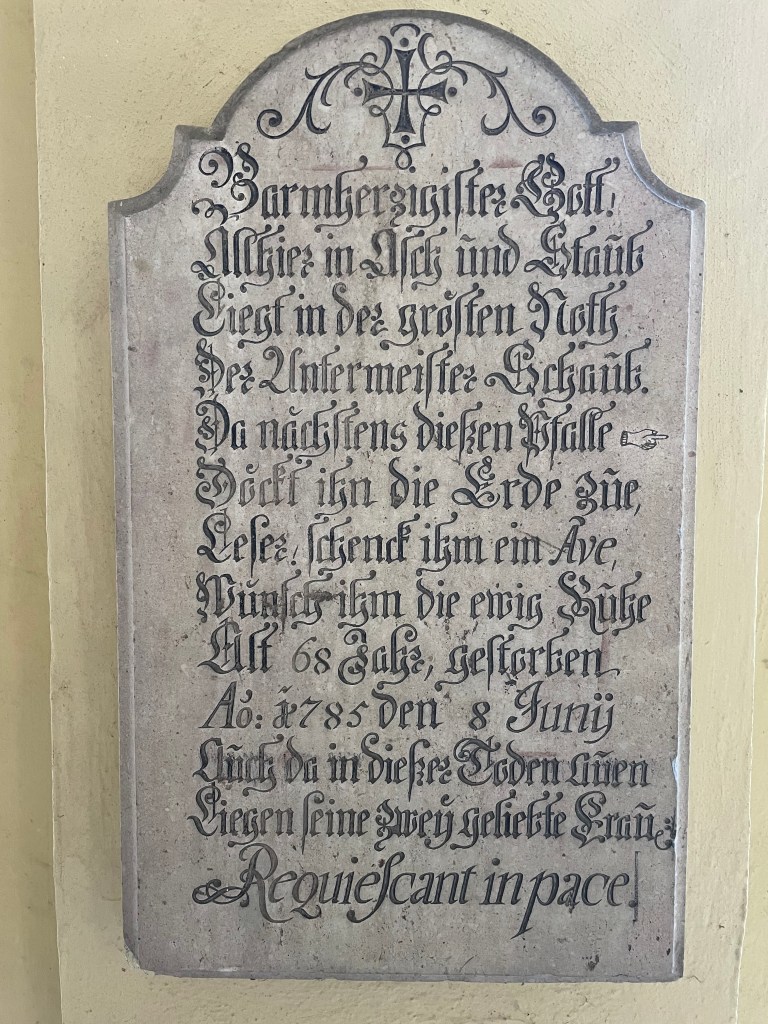 Barmherzigister Gott!
Allhier in Asch und Staub
Liegt in der grösten Noth
Der Untermeister Schaub.
Da nächstens dießen Pfalle ☞
Döckt ihn die Erde züe,
Leser! schenck ihm ein Ave,
Wünsch ihm die ewig Rühe
Alt 68 Jahr, gestorben
Aö: 1785 den 8 Junÿ
Auch da in dießer Toden auen
Liegen seine zweÿ geliebte Frau
Requiescant in pace!